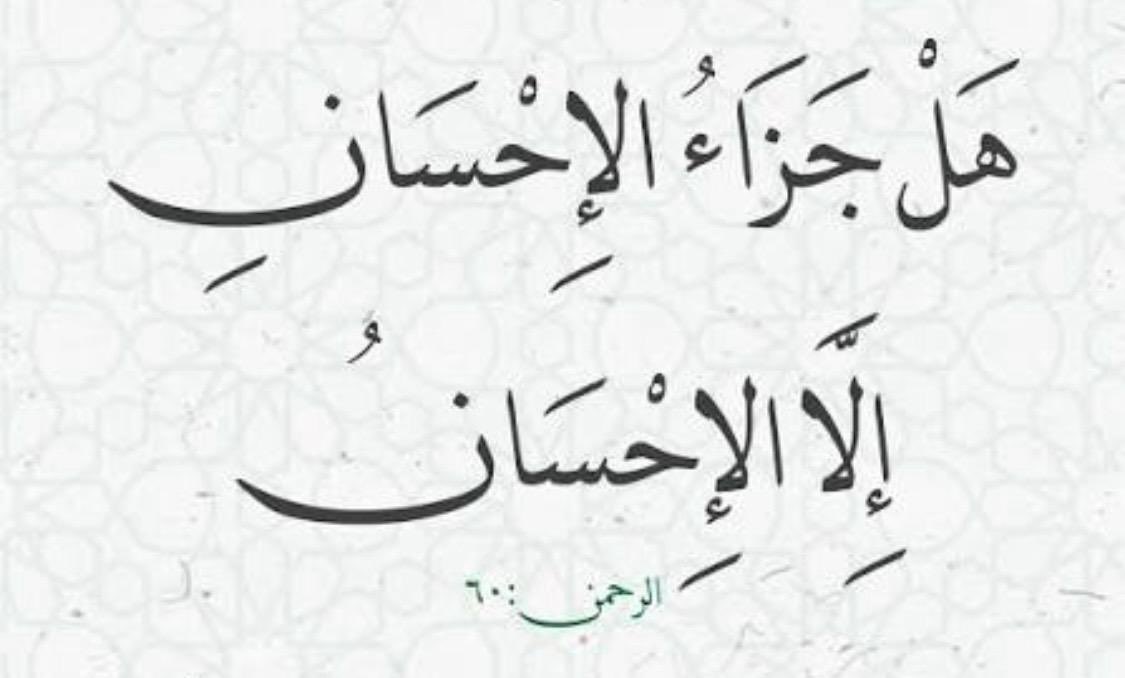 هَلْ جَزَاءُ الإِحْسَانِ
إِلَّا الإِحْسَانُ
الرحمن: ٦٠